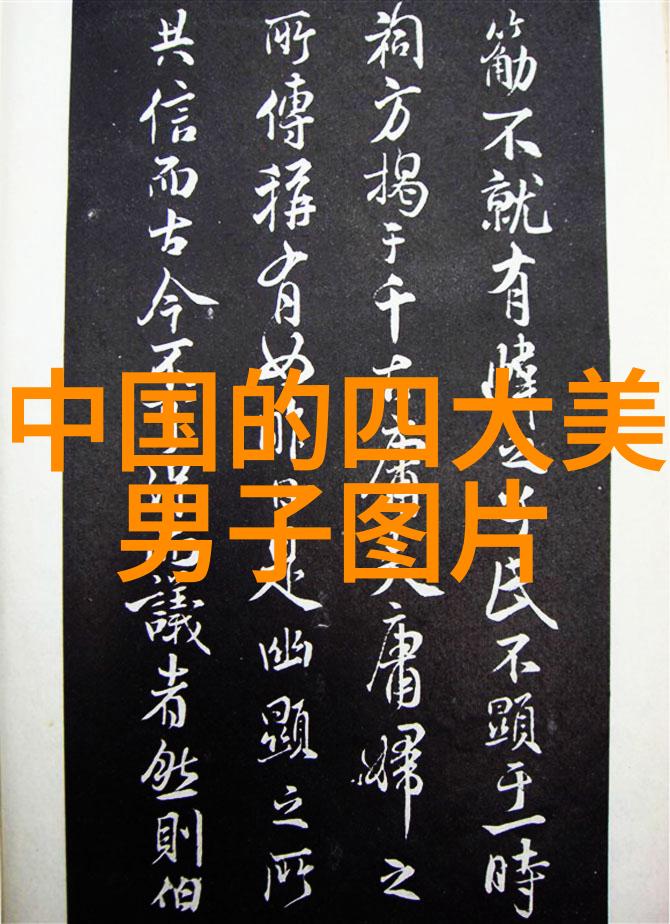 中国的四大美
男子图片
不就有之于民不顯于一時
祠方揭于千古庸夫庸婦之
所傳稱有如昨日是幽顯之所
共信而古今不議者然則伯